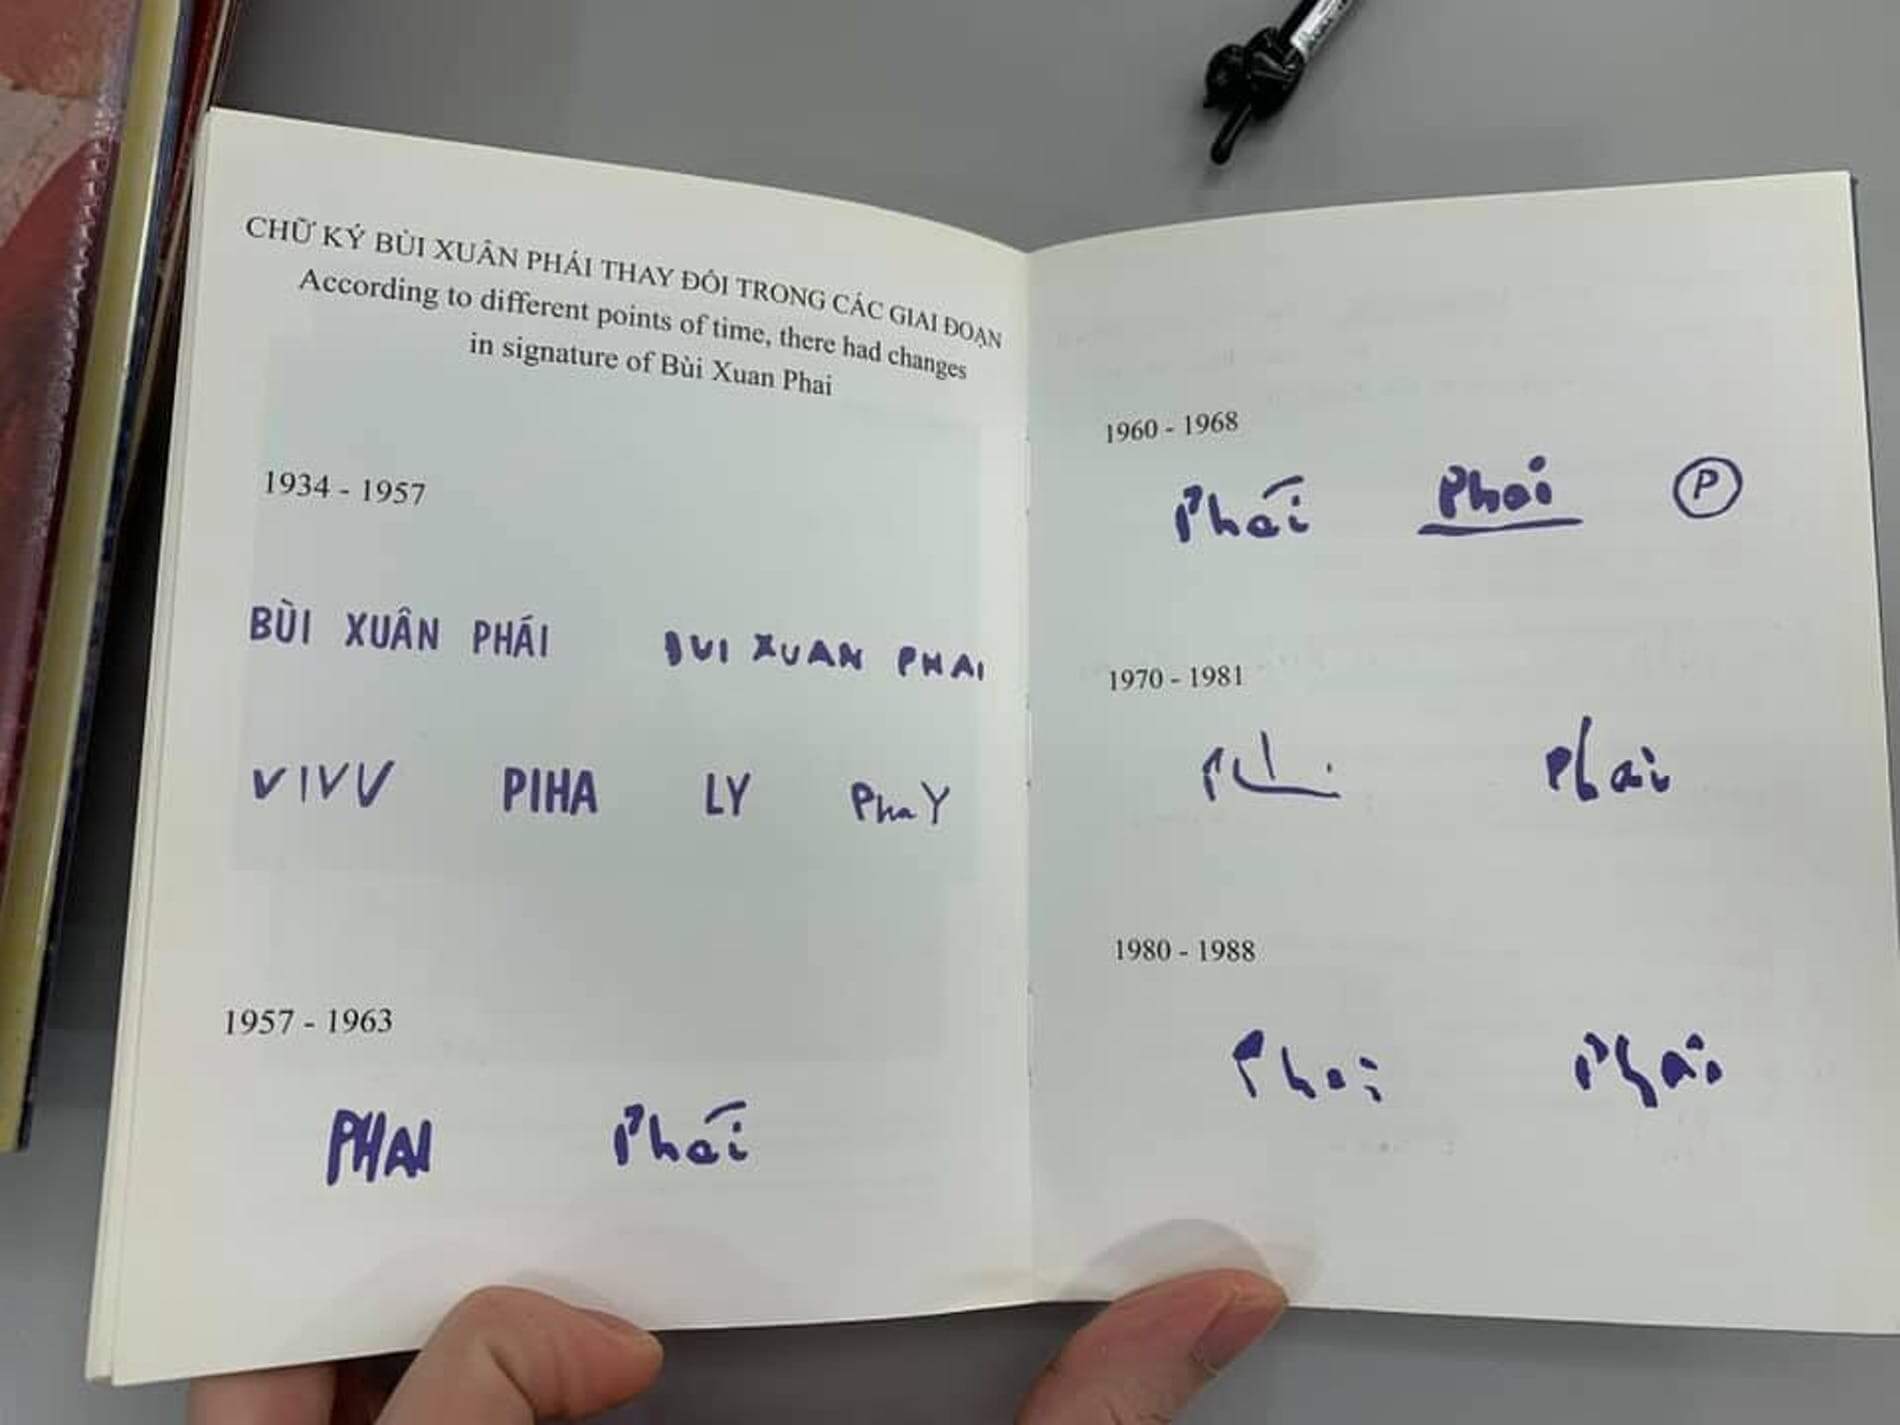 CHỮ KÝ BÙI XUÂN PHÁI THAY ĐỔI TRONG CÁC GIAI ĐOẠN
According to different points of time, there had changes
in signature of Bùi Xuan Phai
1934 - 1957
BÙI XUÂN PHÁI BUI XUAN PHAI
VIVU PIHA LY PhaY
1957 - 1963
PHAI Phái
1960 - 1968
Phái Phai P
1970 - 1981
Phai
1980 - 1988
Phai Phái